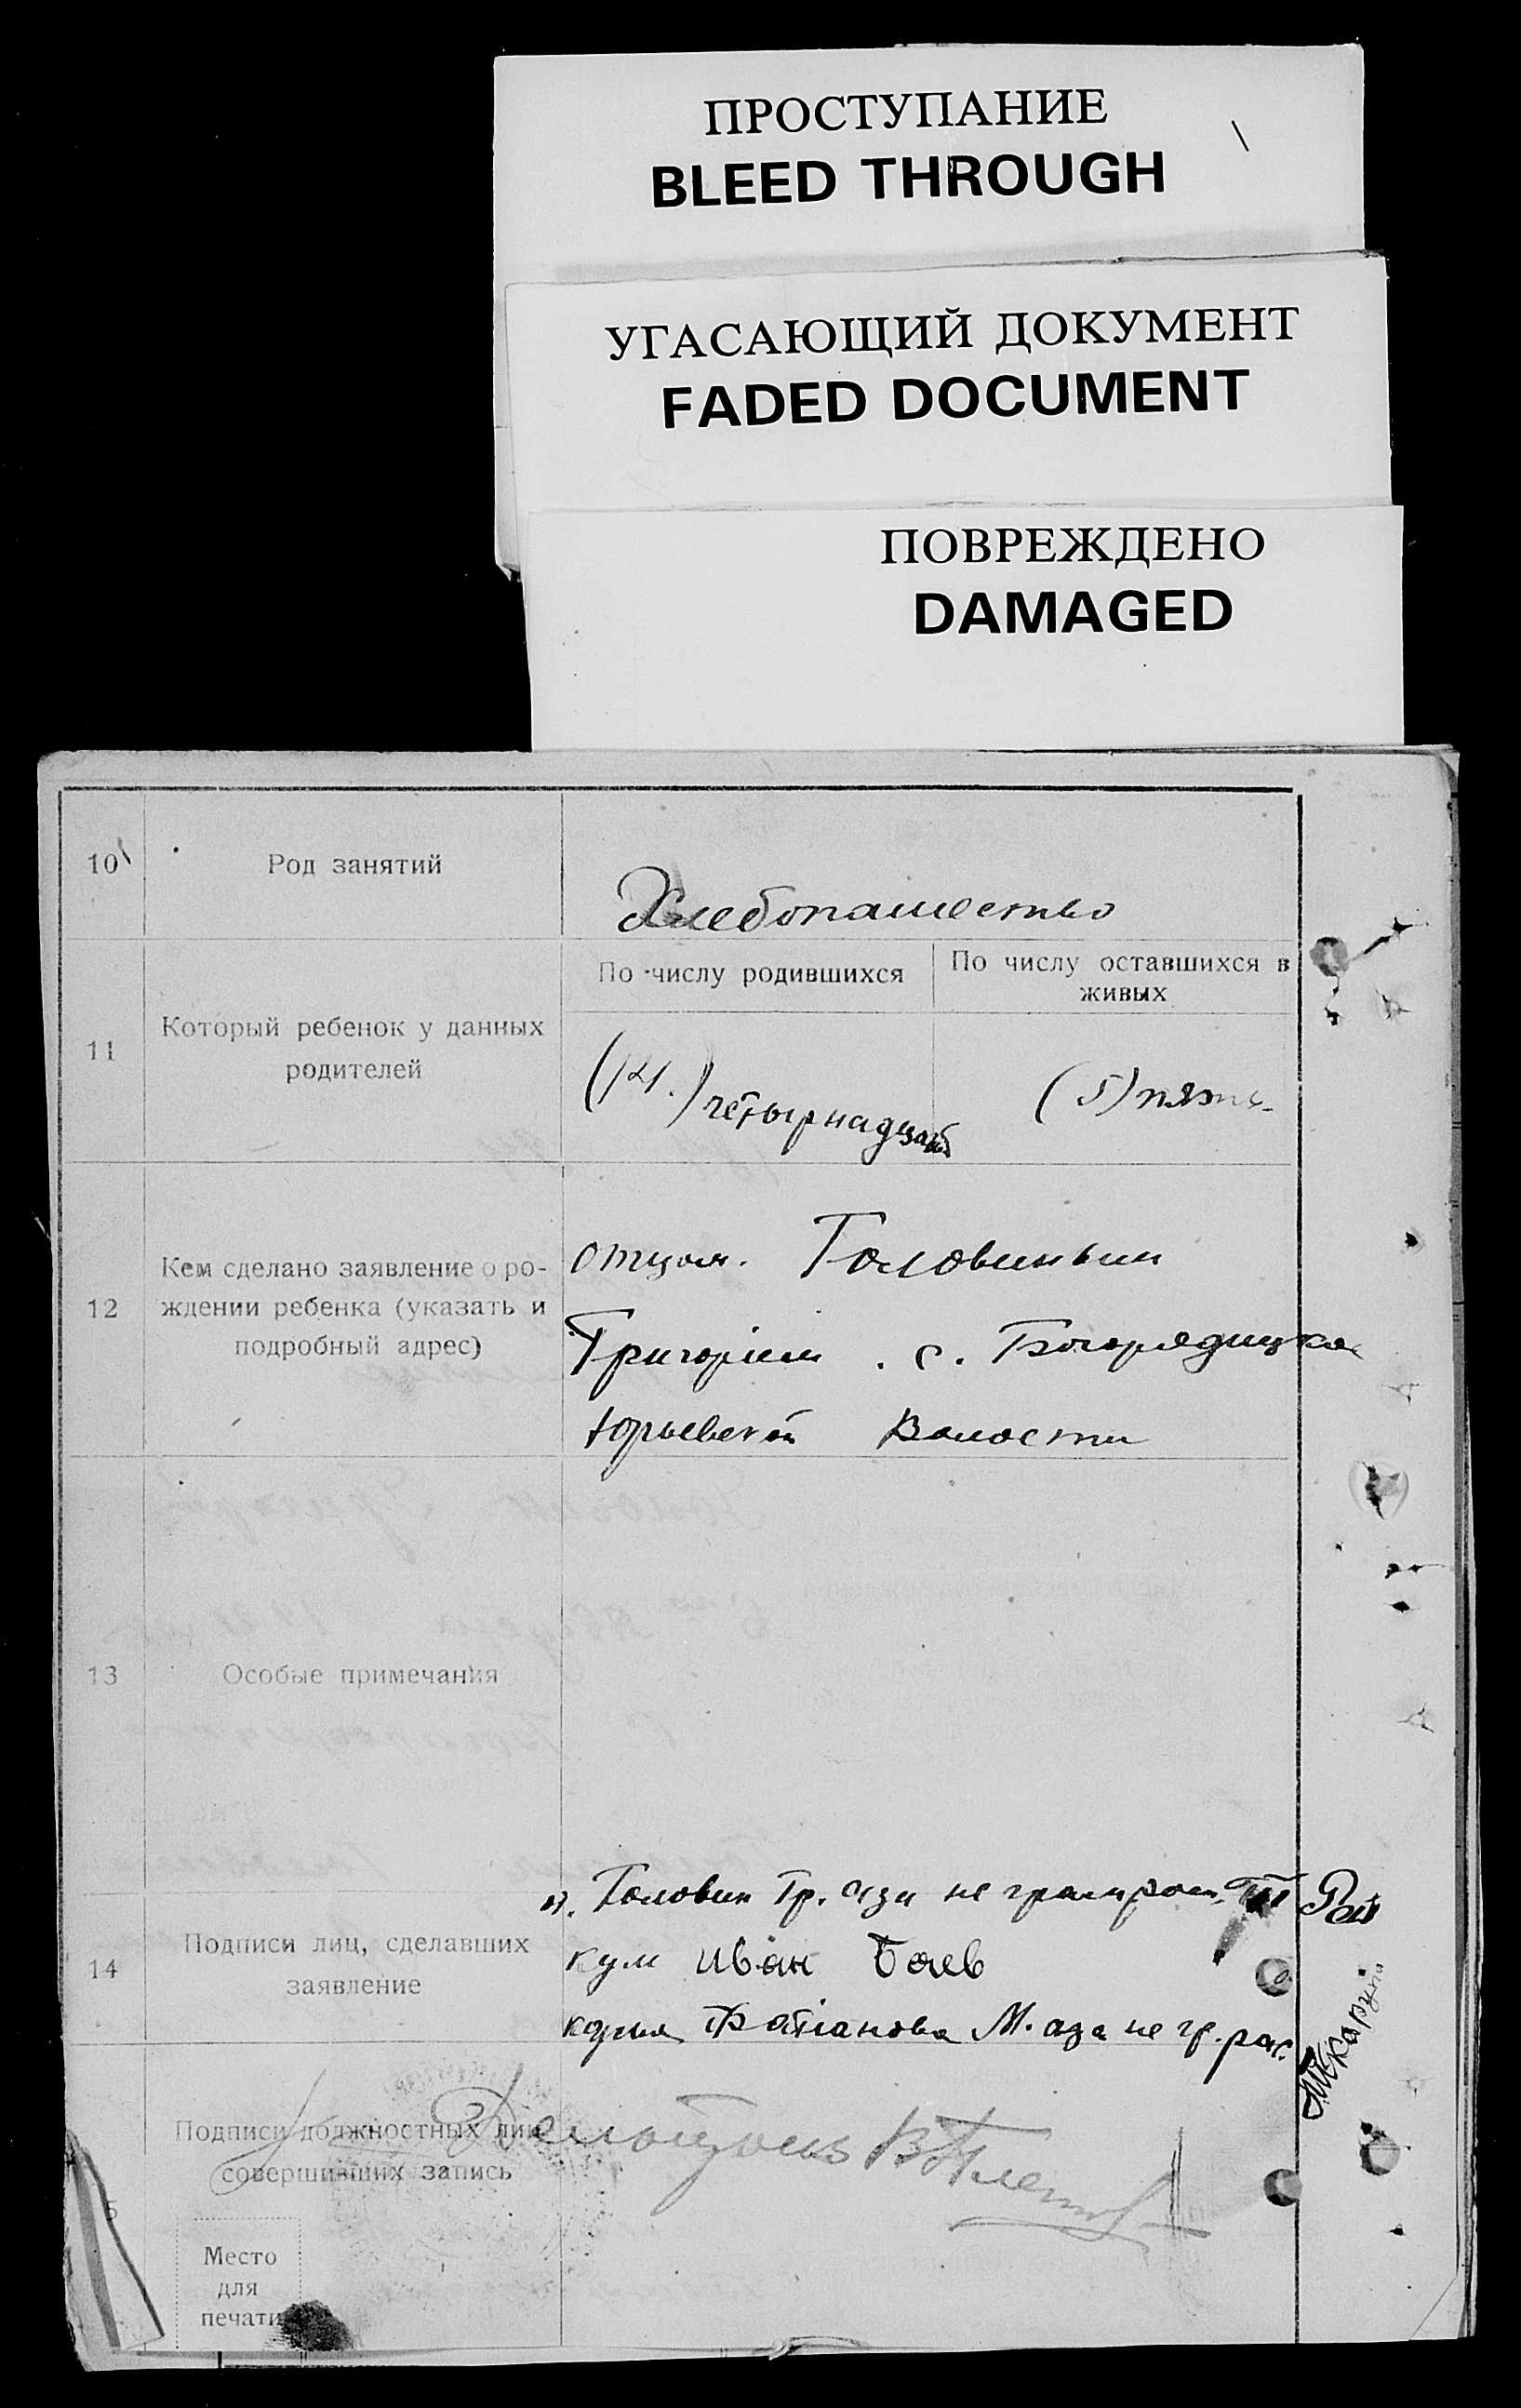 ПРОСТУПАНИЕ
BLEED THROUGH
УГАСАЮЩИЙ ДОКУМЕНТ
FADED DOCUMENT
ПОВРЕЖДЕНО
DAMAGED
10 Род занятий
Хлебопашество
По числу родившихся
По числу оставшихся в
живых
11 Который ребенок у данных
родителей
(14.) четырнадцать
(5) пять
12 Кем сделано заявление о ро-
ждении ребенка (указать и
подробный адрес)
отцом. Головиным
Григорiем . с. Богородицкое
Юрьевской Волости
13 Особые примечания
14 Подписи лиц, сделавших
заявление
Головин Гр. а за не грамотн.
кум Иван Баев
кума Фатiанова М. а за не гр. рас.
Подписи должностных лиц
совершивших запись
Делопроиз
Место
для
печати